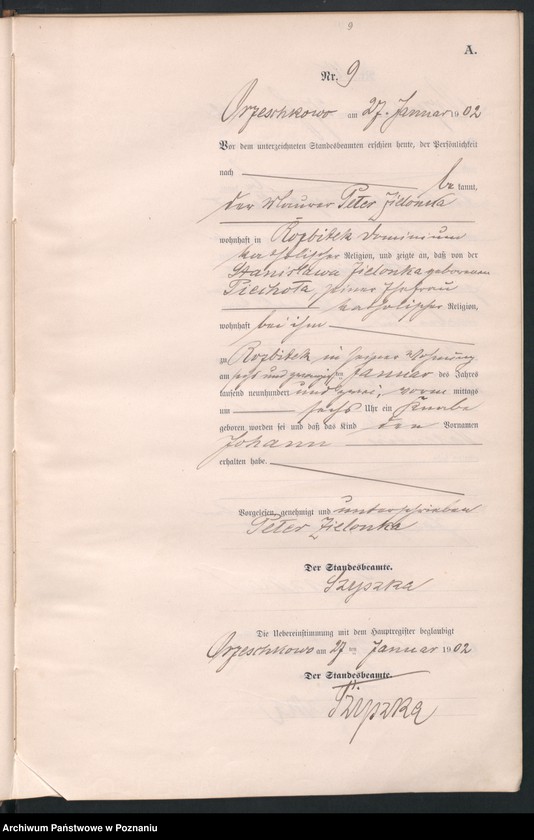 9
A.
Nr. 9
Orzeschkowo am 27. Januar 1902
Vor dem unterzeichneten Standesbeamten erschien heute, der Persönlichkeit
nach
be kannt,
der Maurer Peter Zielonka
wohnhaft in Rozbitek Dominium
katholischer Religion, und zeigte an, daß von der
Stanislawa Zielonka geborenen
Piechota, seiner Ehefrau
katholischer Religion,
wohnhaft bei ihm
zu Rozbitek in seiner Wohnung
am sechs und zwanzigsten Januar des Jahres
tausend neunhundert und zwei, vorm mittags
um sechs Uhr ein Knabe
geboren worden sei und daß das Kind den Vornamen
Johann
erhalten habe.
Vorgelesen, genehmigt und unterschrieben
Peter Zielonka
Der Standesbeamte.
Szyszka
Die Uebereinstimmung mit dem Hauptregister beglaubigt
Orzeschkowo am 27 ten Januar 1902
Der Standesbeamte.
Szyszka
Archiwum Państwowe w Poznaniu